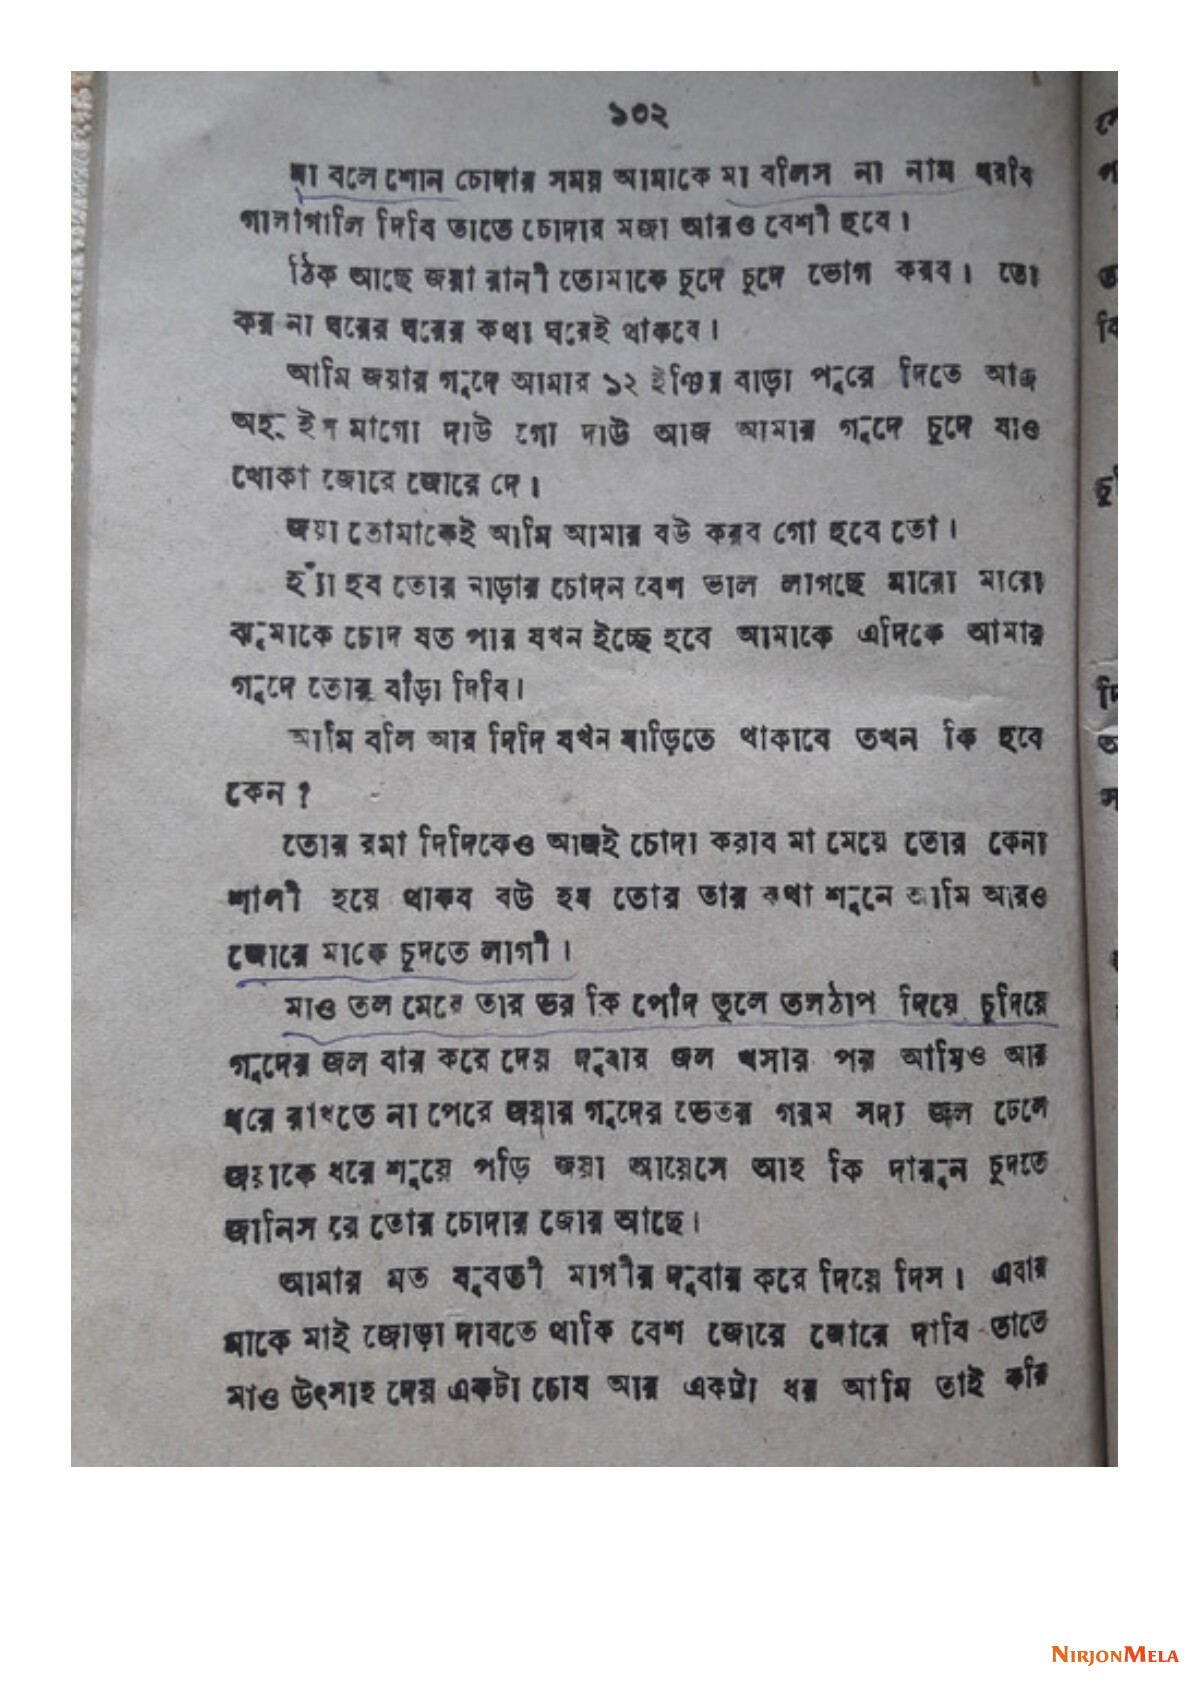 ১০২
মা বলে শোন চোদার সময় আমাকে মা বলিস না নাম ধরবি
গালাগালি দিবি তাতে চোদার মজা আরও বেশী হবে।
ঠিক আছে জয়া রানী তোমাকে চুদে চুদে ভোগ করব। তো
কর না ঘরের ঘরের কথা ঘরেই থাকবে।
আমি জয়ার গুদে আমার ১২ ইঞ্চির বাড়া পুরে দিতে আজ
মাগো দাউ গো দাউ আজ আমার গুদে চুদে যাও
খোকা জোরে জোরে দে।
জয়া তোমাকেই আমি আমার বউ করব গো হবে তো।
হ্যাঁ হব তোর বাড়ার চোদন বেশ ভাল লাগছে মারো মারো
চোদ যত পার যখন ইচ্ছে হবে আমাকে এদিকে আমার
গুদে তোর বাঁড়া দিবি।
আমি বলি আর দিদি যখন বাড়িতে থাকাবে তখন কি হবে
কেন ?
তোর রমা দিদিকেও আজই চোদা করাব মা মেয়ে তোর কেনা
হয়ে থাকব বউ হব তোর তার কথা শুনে আমি আরও
জোরে মাকে চুদতে লাগী।
মাও তল মেরে তার ভর কি পোঁদ তুলে তলঠাপ দিয়ে চুদিয়ে
গুদের জল বার করে দেয় দুবার জল খসার পর আমিও আর
ধরে রাখতে না পেরে জয়ার গুদের ভেতর গরম সদ্য জল ঢেলে
জয়াকে ধরে শুয়ে পড়ি জয়া আয়েসে আহ কি দারুন চুদতে
জানিস রে তোর চোদার জোর আছে।
আমার মত যুবতী মাগীর দুবার করে দিয়ে দিস। এবার
মাকে মাই জোড়া দাবতে থাকি বেশ জোরে জোরে দাবি তাতে
মাও উৎসাহ দেয় একটা চোষ আর একটা ধর আমি তাই করি
NIRJONMELA